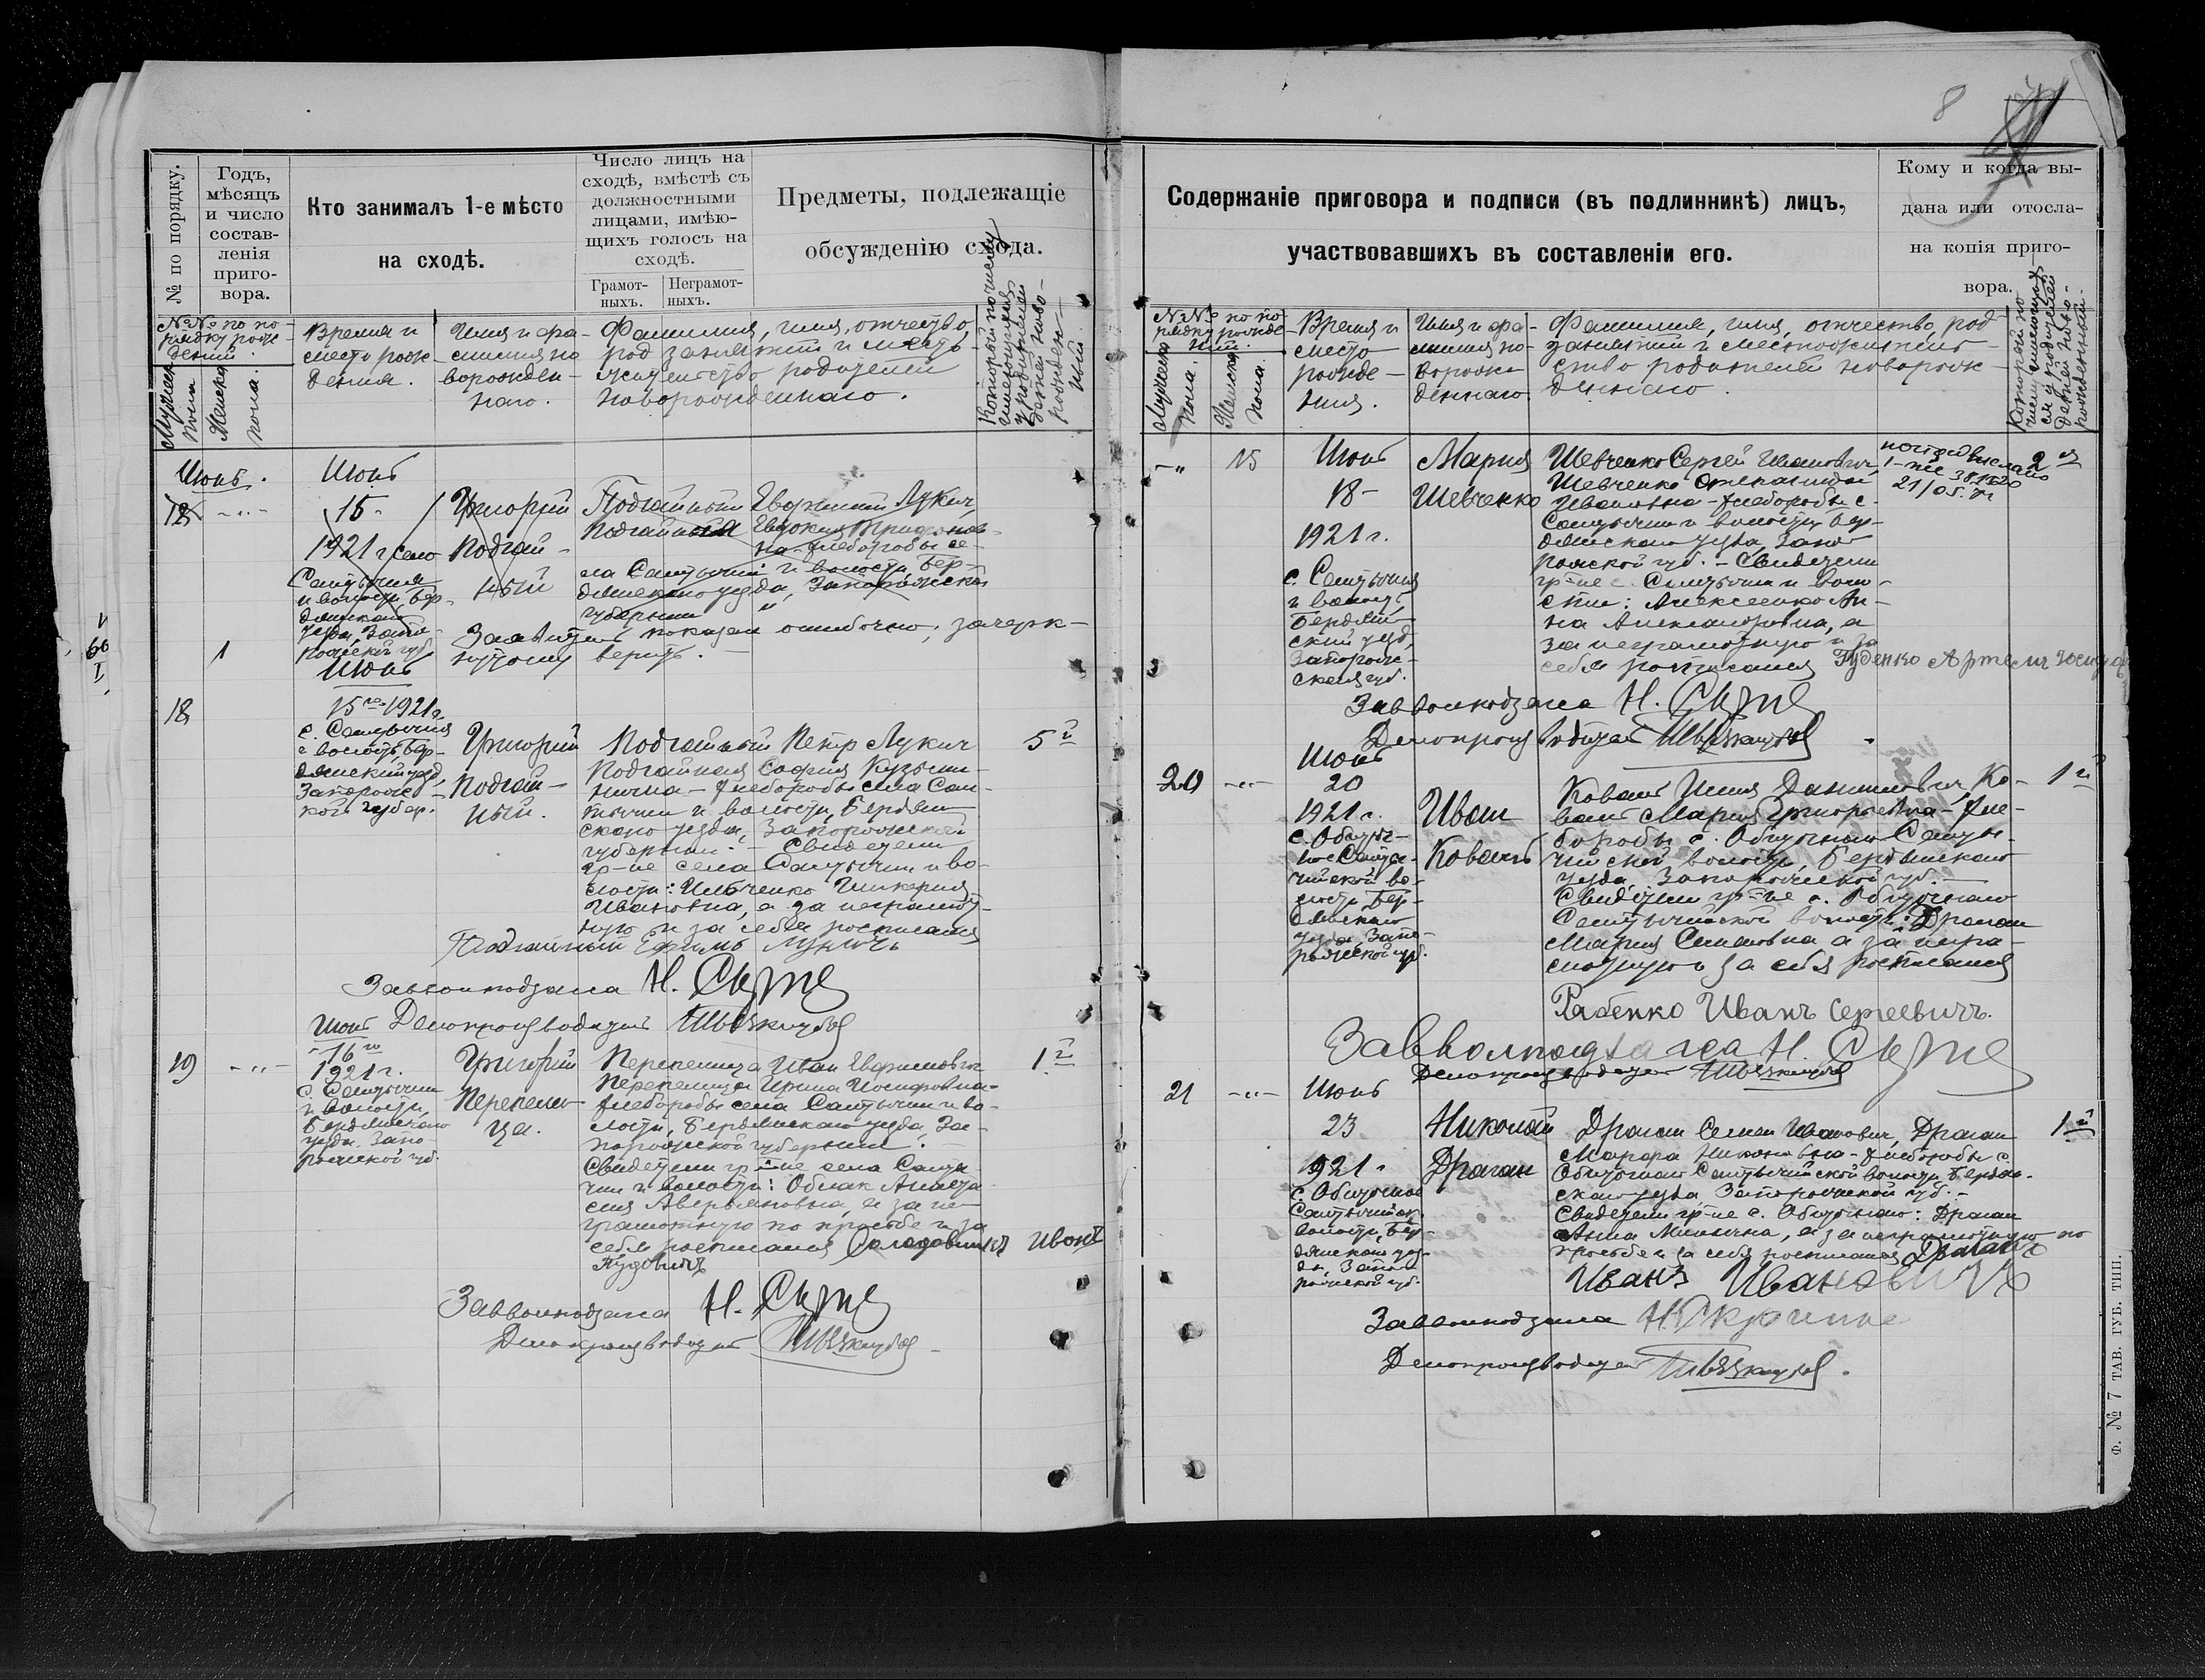 № по порядку.
Годъ,
мѣсяцъ
и число
состав-
ленія
приго-
вора.
Кто занималъ 1-е мѣсто
на сходѣ.
Число лицъ на
сходѣ, вмѣстѣ съ
должностными
лицами, имѣю-
щихъ голосъ на
сходѣ.
Грамот-
ныхъ.
Неграмот-
ныхъ.
Предметы, подлежащіе
обсужденію схода.
№№ по по-
рядку рож-
дений.
Мужска
пола
Женска
пола.
Время и
место рож-
дения.
Имя и фа-
милия но
ворожден-
наго.
Фамилия, имя, отчество,
род занятий и место
жительство родителей
новорожденнаго.
Который по числу
имеющихся
у родителей
детей ново-
рожден-
ный
Июнь.
18
-"-
Июнь
15-
1921 г село
Салтычия
и волости Бер-
дянскаго
уезда, Запо-
рожской губ.
Григорий
Подгай-
ный
Подгайный Евгений Лукич
Подгайная Евдокия Трифонов-
на - хлеборобы се-
ла Салтычии и волости, Бер-
дянскаго уезда, Запорожской
губернии
Заявитель показал ошибочно, зачерк-
нутому верить. -
1
18
Июнь
15го 1921 г.
с. Салтычия
и волости Бер-
дянский уезд,
Запорожс-
кой губер.
Григорий
Подгай-
ный.
Подгайный Петр Лукич
Подгайная София Кузьми-
нична - хлеборобы села Сал-
тычии и волости, Бердян-
скаго уезда, Запорожской
губернии. - Свидетели
гр-не села Салтычии и во-
лости: Ильченко Гликерия
Ивановна, а за неграмот-
ную и за себя росписался
Подгайный Ефимъ Лукичь
5й
Завволподзага Н. Скрипе
Делопроизводитель
19
-"-
Июнь
16го
1921 г.
с. Салтычии
и волости,
Бердянскаго
уезда Запо-
рожской губ.
Григорий
Перепели-
ца.
Перепелица Иван Евфимович
Перепелица Ирина Иосифовна -
хлеборобы села Салтычии и во-
лости, Бердянскаго уезда, За-
порожской губернии. -
Свидетели гр-не села Салты-
чии и волости: Облак Анаста-
сия Аверьяновна, а за не-
грамотную по просьбе и за
себя росписался Солодовникъ Иванъ
1й
Завволподзага Н. Скрипе
Делопроизводитель
8
Содержаніе приговора и подписи (въ подлинникѣ) лицъ,
участвовавшихъ въ составленіи его.
Кому и когда вы-
дана или отосла-
на копія приго-
вора.
№№ по по-
рядку рожде-
ний.
Мужского
пола.
Женска
пола.
Время и
место
рожде-
ния.
Имя и фа-
милия но-
ворож-
деннаго
Фамилия, имя, отчество, род
занятий и местожитель-
ство родителей новорож-
деннаго.
Который по
числу имеющих-
ся у родителей
детей ново-
рожденный.
-"-
15
Июнь
18-
1921 г.
с. Салтычия
и волость
Бердян-
ский уезд,
Запорож-
ская губ.
Мария
Шевченко
Шевченко Сергей Иванович
Шевченко Степанида
Ивановна - хлеборобы с.
Салтычии и волости Бер-
дянскаго уезда, Запо-
рожской губ. - Свидетели
гр-не с. Салтычии и воло-
сти: Алексеенко Ан-
на Александровна, а
за неграмотную и за
себя росписался Гуденко Артем
21/05
2я
Завволподзага Н. Скрипе
Делопроизводитель
20
-"-
Июнь
20
1921 г.
с. Обиточ-
ное Салты-
чийской во-
лости Бер-
дянскаго
уезда, Запо-
рожской губ.
Иван
Коваль
Коваль Илия Данилович, Ко-
валь Мария Григорьевна - хле-
боробы с. Обиточнаго Салты-
чийской волости, Бердянскаго
уезда Запорожской губ. -
Свидетели гр-не с. Обиточнаго
Салтычийской волости: Драган
Мария Семеновна а за негра-
мотную и за себя росписался
Рабенко Иванъ Сергеевичъ.
1й
Завволподзага Н. Скрипе
Делопроизводитель
21
-"-
Июнь
23
1921 г
с. Обиточное
Салтычийск.
волости, Бер-
дянскаго уез-
да, Запо-
рожской губ.
Николай
Драган
Драган Семен Иванович, Драган
Марфа Николаевна - хлеборобы с.
Обиточнаго Салтычийской волости Бердян-
скаго уезда Запорожской губ. -
Свидетели гр-не с. Обиточнаго: Драган
Анна Минична, а за неграмотную по
просьбе и за себя росписался Драганъ
Иванъ Ивановичъ
1й
Завволподзага Н. Скрипе
Делопроизводитель
Ф. № 7 ТАВ. ГУБ. ТИП.